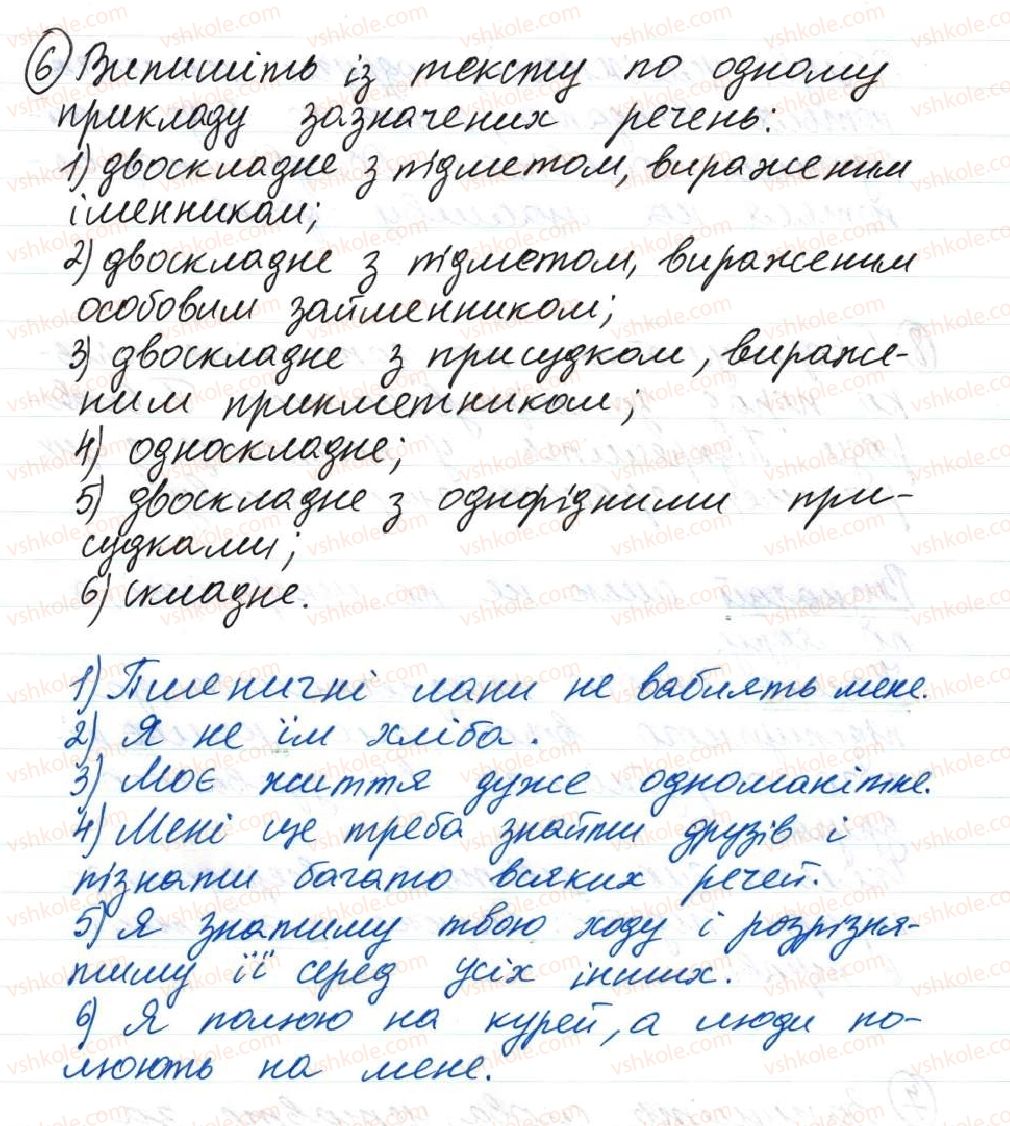 6) Випишіть із тексту по одному
прикладу зазначених речень:
1) двоскладне з підметом, вираженим
іменником;
2) двоскладне з підметом, вираженим
особовим займенником;
3) двоскладне з присудком, вираже-
ним прикметником;
4) односкладне;
5) двоскладне з однорідними при-
судками;
6) складне.
1) Пшеничні лани не ваблять мене.
2) Я не їм хліба.
3) Моє життя дуже одноманітне.
4) Мені ще треба знайти друзів і
пізнати багато всяких речей.
5) Я знатиму твою ходу і розрізня-
тиму її серед усіх інших.
6) Я полюю на курей, а люди по-
люють на мене.
vshkole.com